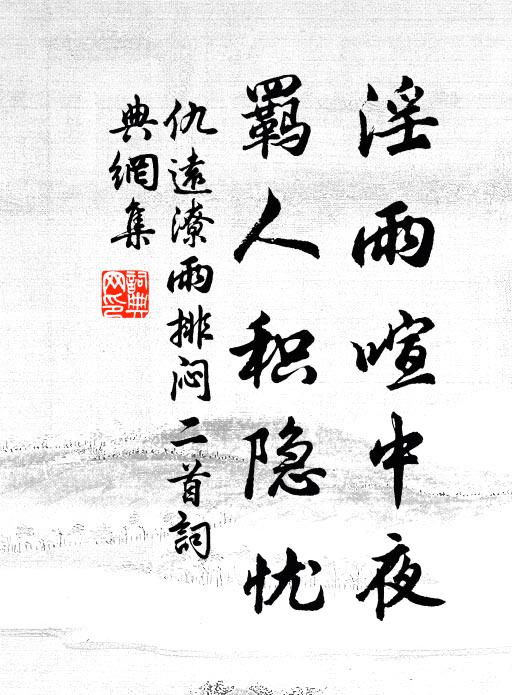 淫雨喧中夜
羁人积隐忧
仇遠潦雨排闷二首詞
典網集
詞典网印